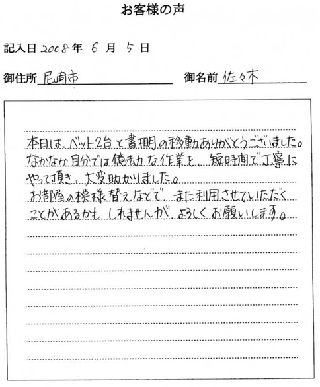 お客様の声
記入日 2008年 6月 5日
御住所 尼崎市 御名前 佐々木
本日は、ベット2台と書棚の移動ありがとうございました。
なかなか自分では 作業を、短時間で丁寧に
やって頂き、大変助かりました。
お部屋の模様替えなどで、また利用させていただく
ことがあるかも しれませんが、よろしくお願いします。